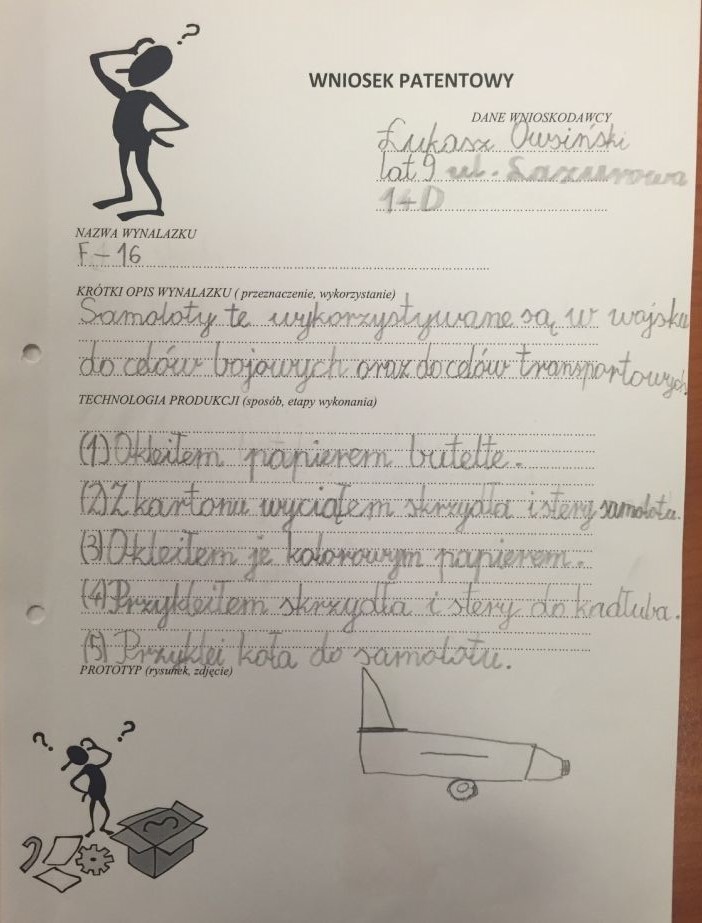 ?
WNIOSEK PATENTOWY
DANE WNIOSKODAWCY
Łukasz Owsiński
lat 9 ul. Lazurowa
14D
NAZWA WYNALAZKU
F-16
KRÓTKI OPIS WYNALAZKU ( przeznaczenie, wykorzystanie)
Samoloty te wykorzystywane są w wojsku
do celów bojowych oraz do celów transportowych.
TECHNOLOGIA PRODUKCJI (sposób, etapy wykonania)
(1) Okleiłem papierem butelte.
(2) Z kartonu wyciąłem skrzydła i stery samolotu.
(3) Okleiłem je kolorowym papierem.
(4) Przykleiłem skrzydła i stery do kadłuba.
(5) Przyklei koła do samolotu.
PROTOTYP (rysunek, zdjęcie)
? ?